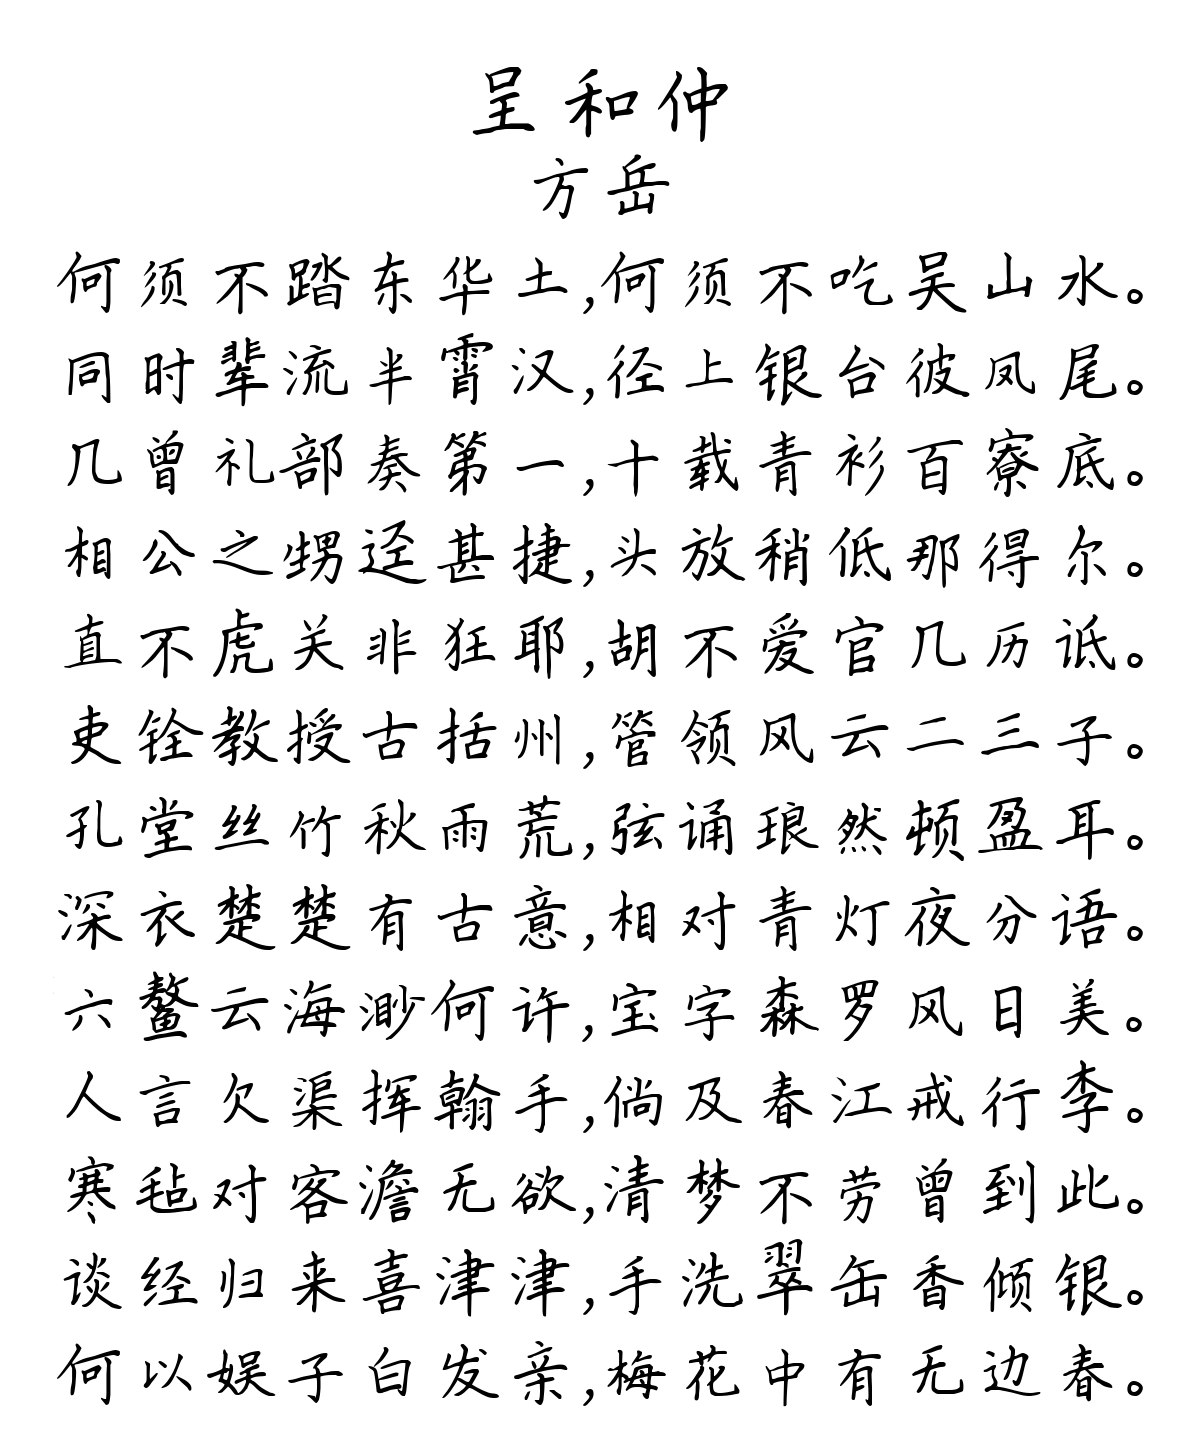 呈和仲
方岳
何须不踏东华土,何须不吃吴山水。
同时辈流半霄汉,径上银台彼凤尾。
几曾礼部奏第一,十载青衫百寮底。
相公之甥迳甚捷,头放稍低那得尔。
直不虎关非狂耶,胡不爱官几历诋。
吏铨教授古括州,管领风云二三子。
孔堂丝竹秋雨荒,弦诵琅然顿盈耳。
深衣楚楚有古意,相对青灯夜分语。
六鳌云海渺何许,宝字森罗风日美。
人言欠渠挥翰手,倘及春江戒行李。
寒毡对客澹无欲,清梦不劳曾到此。
谈经归来喜津津,手洗翠缶香倾银。
何以娱子白发亲,梅花中有无边春。